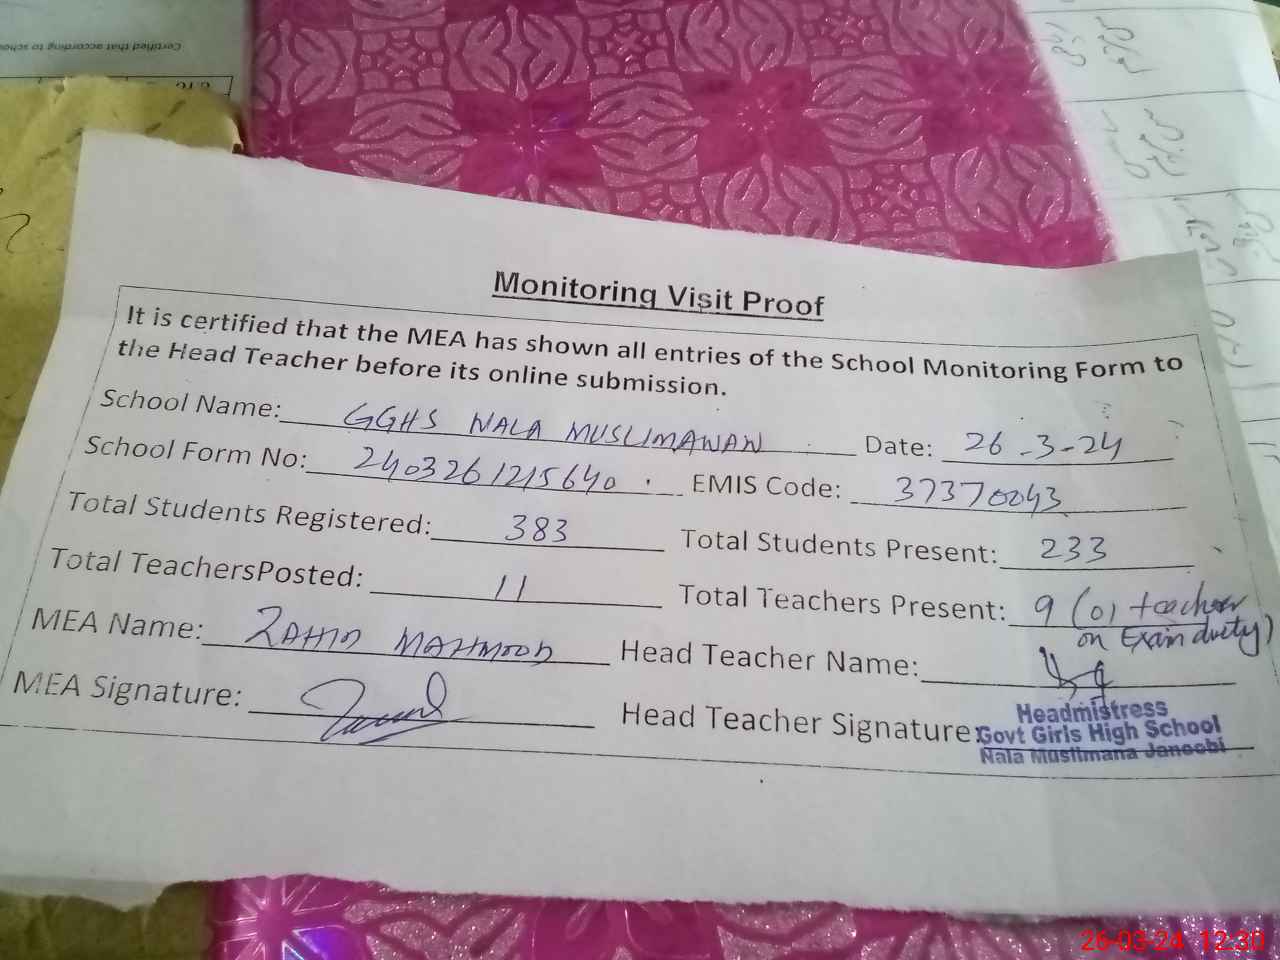 Certified that according to scho
Monitoring Visit Proof
It is certified that the MEA has shown all entries of the School Monitoring Form to
the Head Teacher before its online submission.
School Name: GGHS NALA MUSLIMAWAN Date: 26-3-24
School Form No: 2403261215640 EMIS Code: 37370043
Total Students Registered: 383 Total Students Present: 233
Total TeachersPosted: 11 Total Teachers Present: 9 (01 teacher
on Exam duety)
MEA Name: ZAHID MAHMOOD Head Teacher Name:
MEA Signature: Head Teacher Signature:
Headmistress
Govt Girls High School
Nala Muslimana Janoobi
26-03-24 12:30